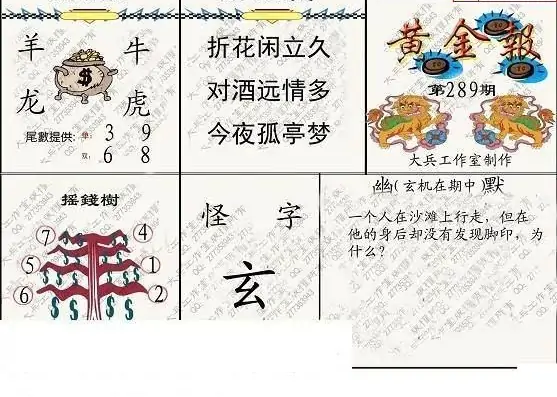 羊 牛
龙 虎
尾數提供: 单: 3 9
双: 6 8
折花闲立久
对酒远情多
今夜孤亭梦
黄金報
第289期
大兵工作室制作
摇錢樹
⑦ ④
⑤ ①
⑥ ②
怪字
玄
幽(玄机在期中)默
一个人在沙滩上行走，但在
他的身后却没有发现脚印，为
什么？